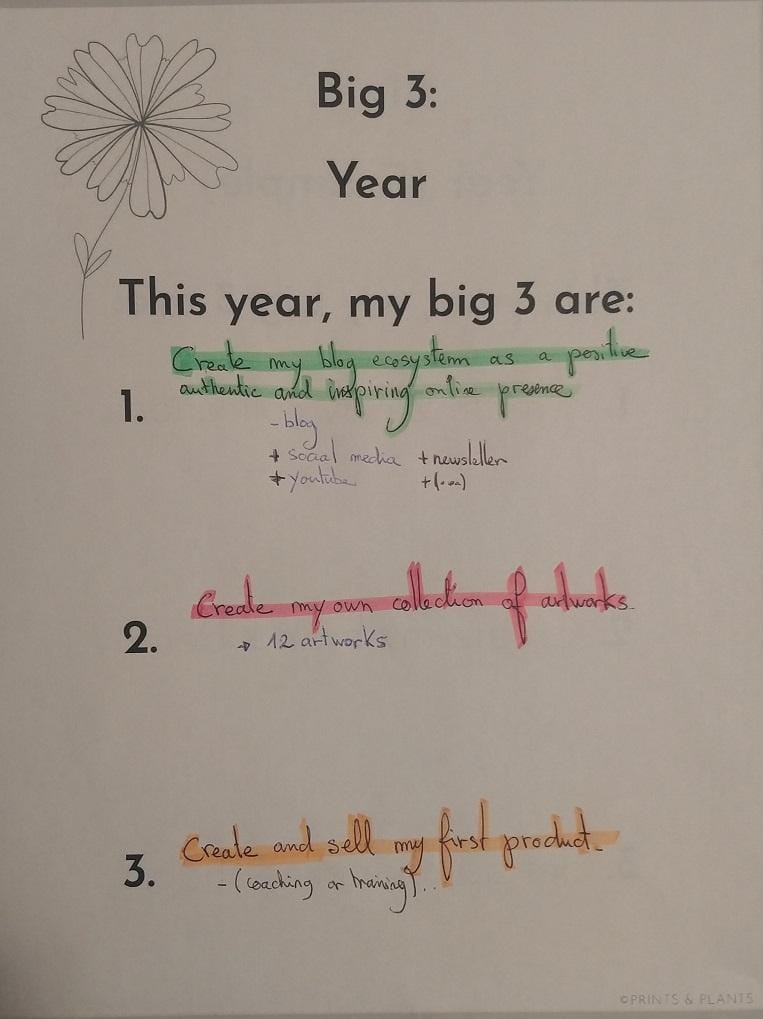 Big 3:
Year
This year, my big 3 are:
1.
Create my blog ecosystem as a positive
authentic and inspiring online presence
- blog
+ social media + newsletter
+ youtube +(...)
2.
Create my own collection of artworks.
→ 12 artworks
3.
Create and sell my first product.
- (coaching or training)...
©PRINTS & PLANTS